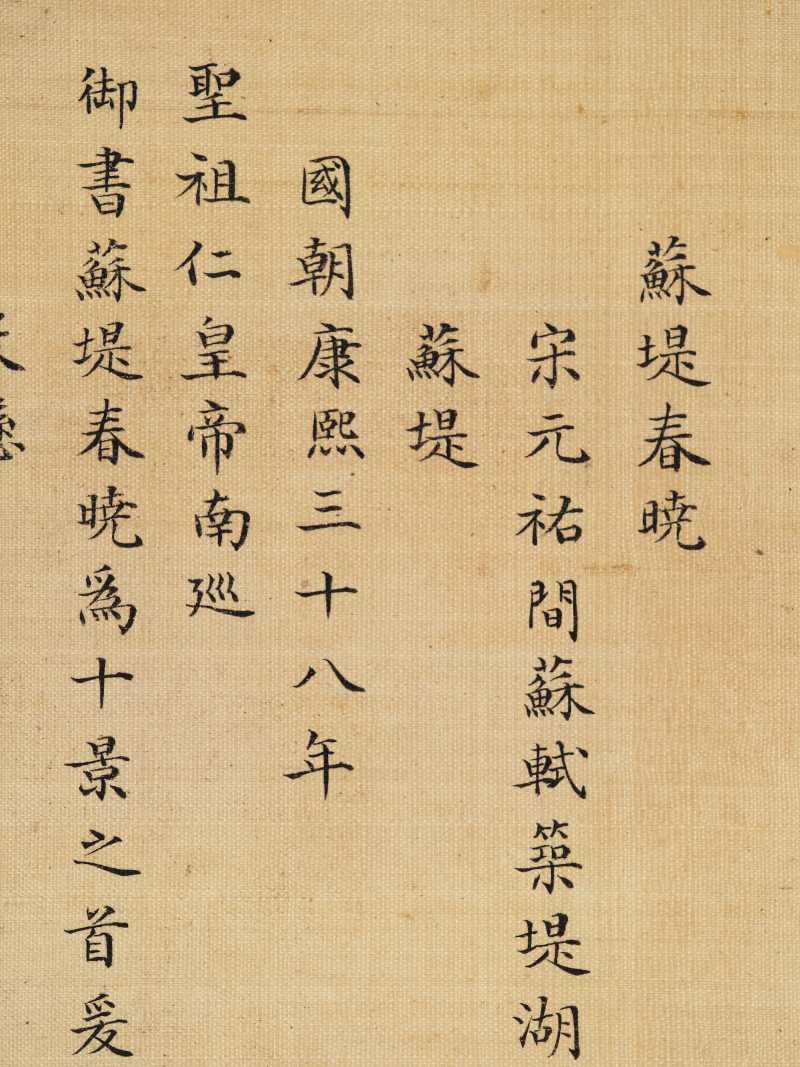 蘇堤春曉
宋元祐間蘇軾築堤湖
蘇堤
國朝康熙三十八年
聖祖仁皇帝南廵
御書蘇堤春曉爲十景之首爰